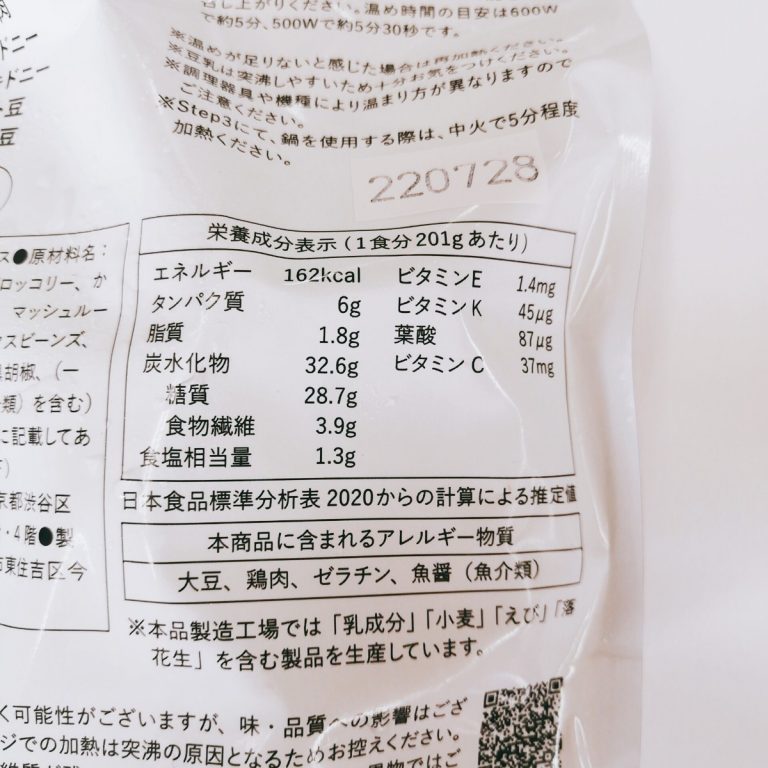 召し上がりください。温め時間の目安は600W
で約5分、500Wで約5分30秒です。
※温めが足りないと感じた場合は再加熱ください。
※豆乳は突沸しやすいため十分お気をつけください。
※調理器具や機種により温まり方が異なりますので
ご注意ください。
※Step3にて、鍋を使用する際は、中火で5分程度
加熱ください。
220728
ドニー
ドニー
豆
豆
ス●原材料名:
ロッコリー、か
マッシュルー
スビーンズ、
胡椒、(一
類)を含む)
に記載してあ
京都渋谷区
・4階●製
東住吉区今
栄養成分表示(1食分201gあたり)
エネルギー 162kcal ビタミンE 1.4mg
タンパク質 6g ビタミンK 45μg
脂質 1.8g 葉酸 87μg
炭水化物 32.6g ビタミンC 37mg
糖質 28.7g
食物繊維 3.9g
食塩相当量 1.3g
日本食品標準分析表2020からの計算による推定値
本商品に含まれるアレルギー物質
大豆、鶏肉、ゼラチン、魚醤(魚介類)
※本品製造工場では「乳成分」「小麦」「えび」「落
花生」を含む製品を生産しています。
く可能性がございますが、味・品質への影響はござ
ジでの加熱は突沸の原因となるためお控えください。